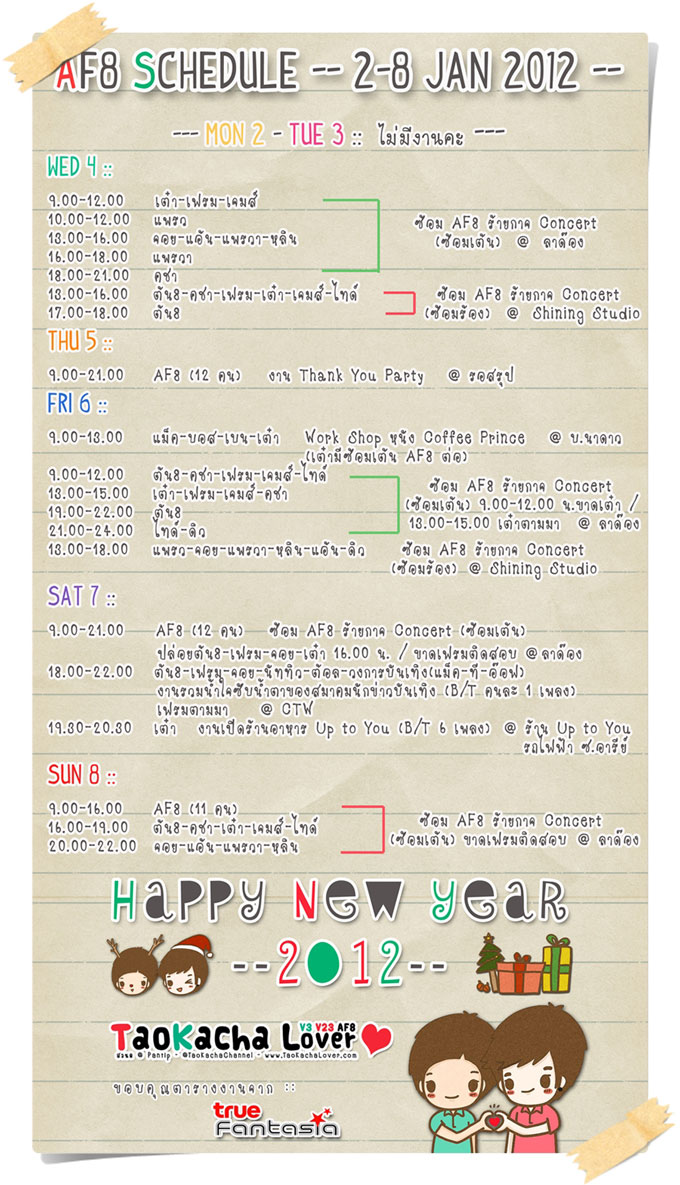 AF8 SCHEDULE -- 2-8 JAN 2012 --
--- MON 2 - TUE 3 :: ไม่มีงานคะ ---
WED 4 ::
9.00-12.00 เต๋า-เฟรม-เจมส์
10.00-12.00 แพรว
13.00-16.00 จอย-แอ้น-แพรวา-หลิน
16.00-18.00 แพรวา
18.00-21.00 คชา
ซ้อม AF8 ร้ายกาจ Concert
(ซ้อมเต้น) @ ลาด๊อง
13.00-16.00 ต้น8-คชา-เฟรม-เต๋า-เจมส์-ไทด์
17.00-18.00 ต้น8
ซ้อม AF8 ร้ายกาจ Concert
(ซ้อมร้อง) @ Shining Studio
THU 5 ::
9.00-21.00 AF8 (12 คน) งาน Thank You Party @ รอสรุป
FRI 6 ::
9.00-13.00 แม็ค-บอส-เบน-เต๋า Work Shop หนัง Coffee Prince @ บ.นาดาว
(เต๋ามีซ้อมเต้น AF8 ต่อ)
9.00-12.00 ต้น8-คชา-เฟรม-เจมส์-ไทด์
13.00-15.00 เต๋า-เฟรม-เจมส์-คชา
19.00-22.00 ต้น8
21.00-24.00 ไทด์-ดิว
ซ้อม AF8 ร้ายกาจ Concert
(ซ้อมเต้น) 9.00-12.00 น.ขาดเต๋า /
13.00-15.00 เต๋าตามมา @ ลาด๊อง
13.00-18.00 แพรว-จอย-แพรวา-หลิน-แอ้น-ดิว ซ้อม AF8 ร้ายกาจ Concert
(ซ้อมร้อง) @ Shining Studio
SAT 7 ::
9.00-21.00 AF8 (12 คน) ซ้อม AF8 ร้ายกาจ Concert (ซ้อมเต้น)
ปล่อยต้น8-เฟรม-จอย-เต๋า 16.00 น. / ขาดเฟรมติดสอบ @ ลาด๊อง
18.00-22.00 ต้น8-เฟรม-จอย-นัททิว-ต้อล-วงการบันเทิง(แม็ค-ที-อ๊อฟ)
งานรวมน้ำใจซับน้ำตาของสมาคมนักข่าวบันเทิง (B/T คนละ 1 เพลง)
เฟรมตามมา @ CTW
19.30-20.30 เต๋า งานเปิดร้านอาหาร Up to You (B/T 6 เพลง) @ ร้าน Up to You
รถไฟฟ้า ซ.อารีย์
SUN 8 ::
9.00-16.00 AF8 (11 คน)
16.00-19.00 ต้น8-คชา-เต๋า-เจมส์-ไทด์
20.00-22.00 จอย-แอ้น-แพรวา-หลิน
ซ้อม AF8 ร้ายกาจ Concert
(ซ้อมเต้น) ขาดเฟรมติดสอบ @ ลาด๊อง
Happy New Year
--2012--
TaoKacha Lover V3 V23 AF8
@ Pantip - @TaoKachaChannel - www.TaoKachaLover.com
ขอบคุณตารางงานจาก ::
true
Fantasia